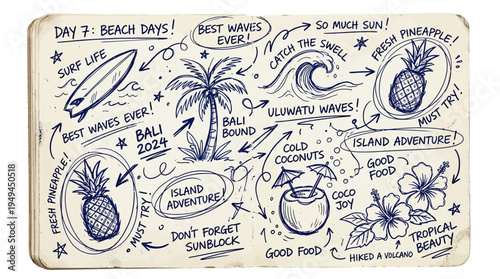 DAY 7: BEACH DAYS!
BEST WAVES
EVER!
SO MUCH SUN!
CATCH THE SWELL
FRESH PINEAPPLE!
SURF LIFE
BEST WAVES EVER!
BALI
2024
BALI
BOUND
ULUWATU WAVES!
MUST TRY!
ISLAND ADVENTURE!
FRESH PINEAPPLE!
MUST TRY
ISLAND
ADVENTURE!
COLD
COCONUTS
GOOD
FOOD
COCO
JOY
DON'T FORGET
SUNBLOCK
GOOD FOOD
HIKED A VOLCANO
TROPICAL
BEAUTY
Adobe Stock | #1949450518